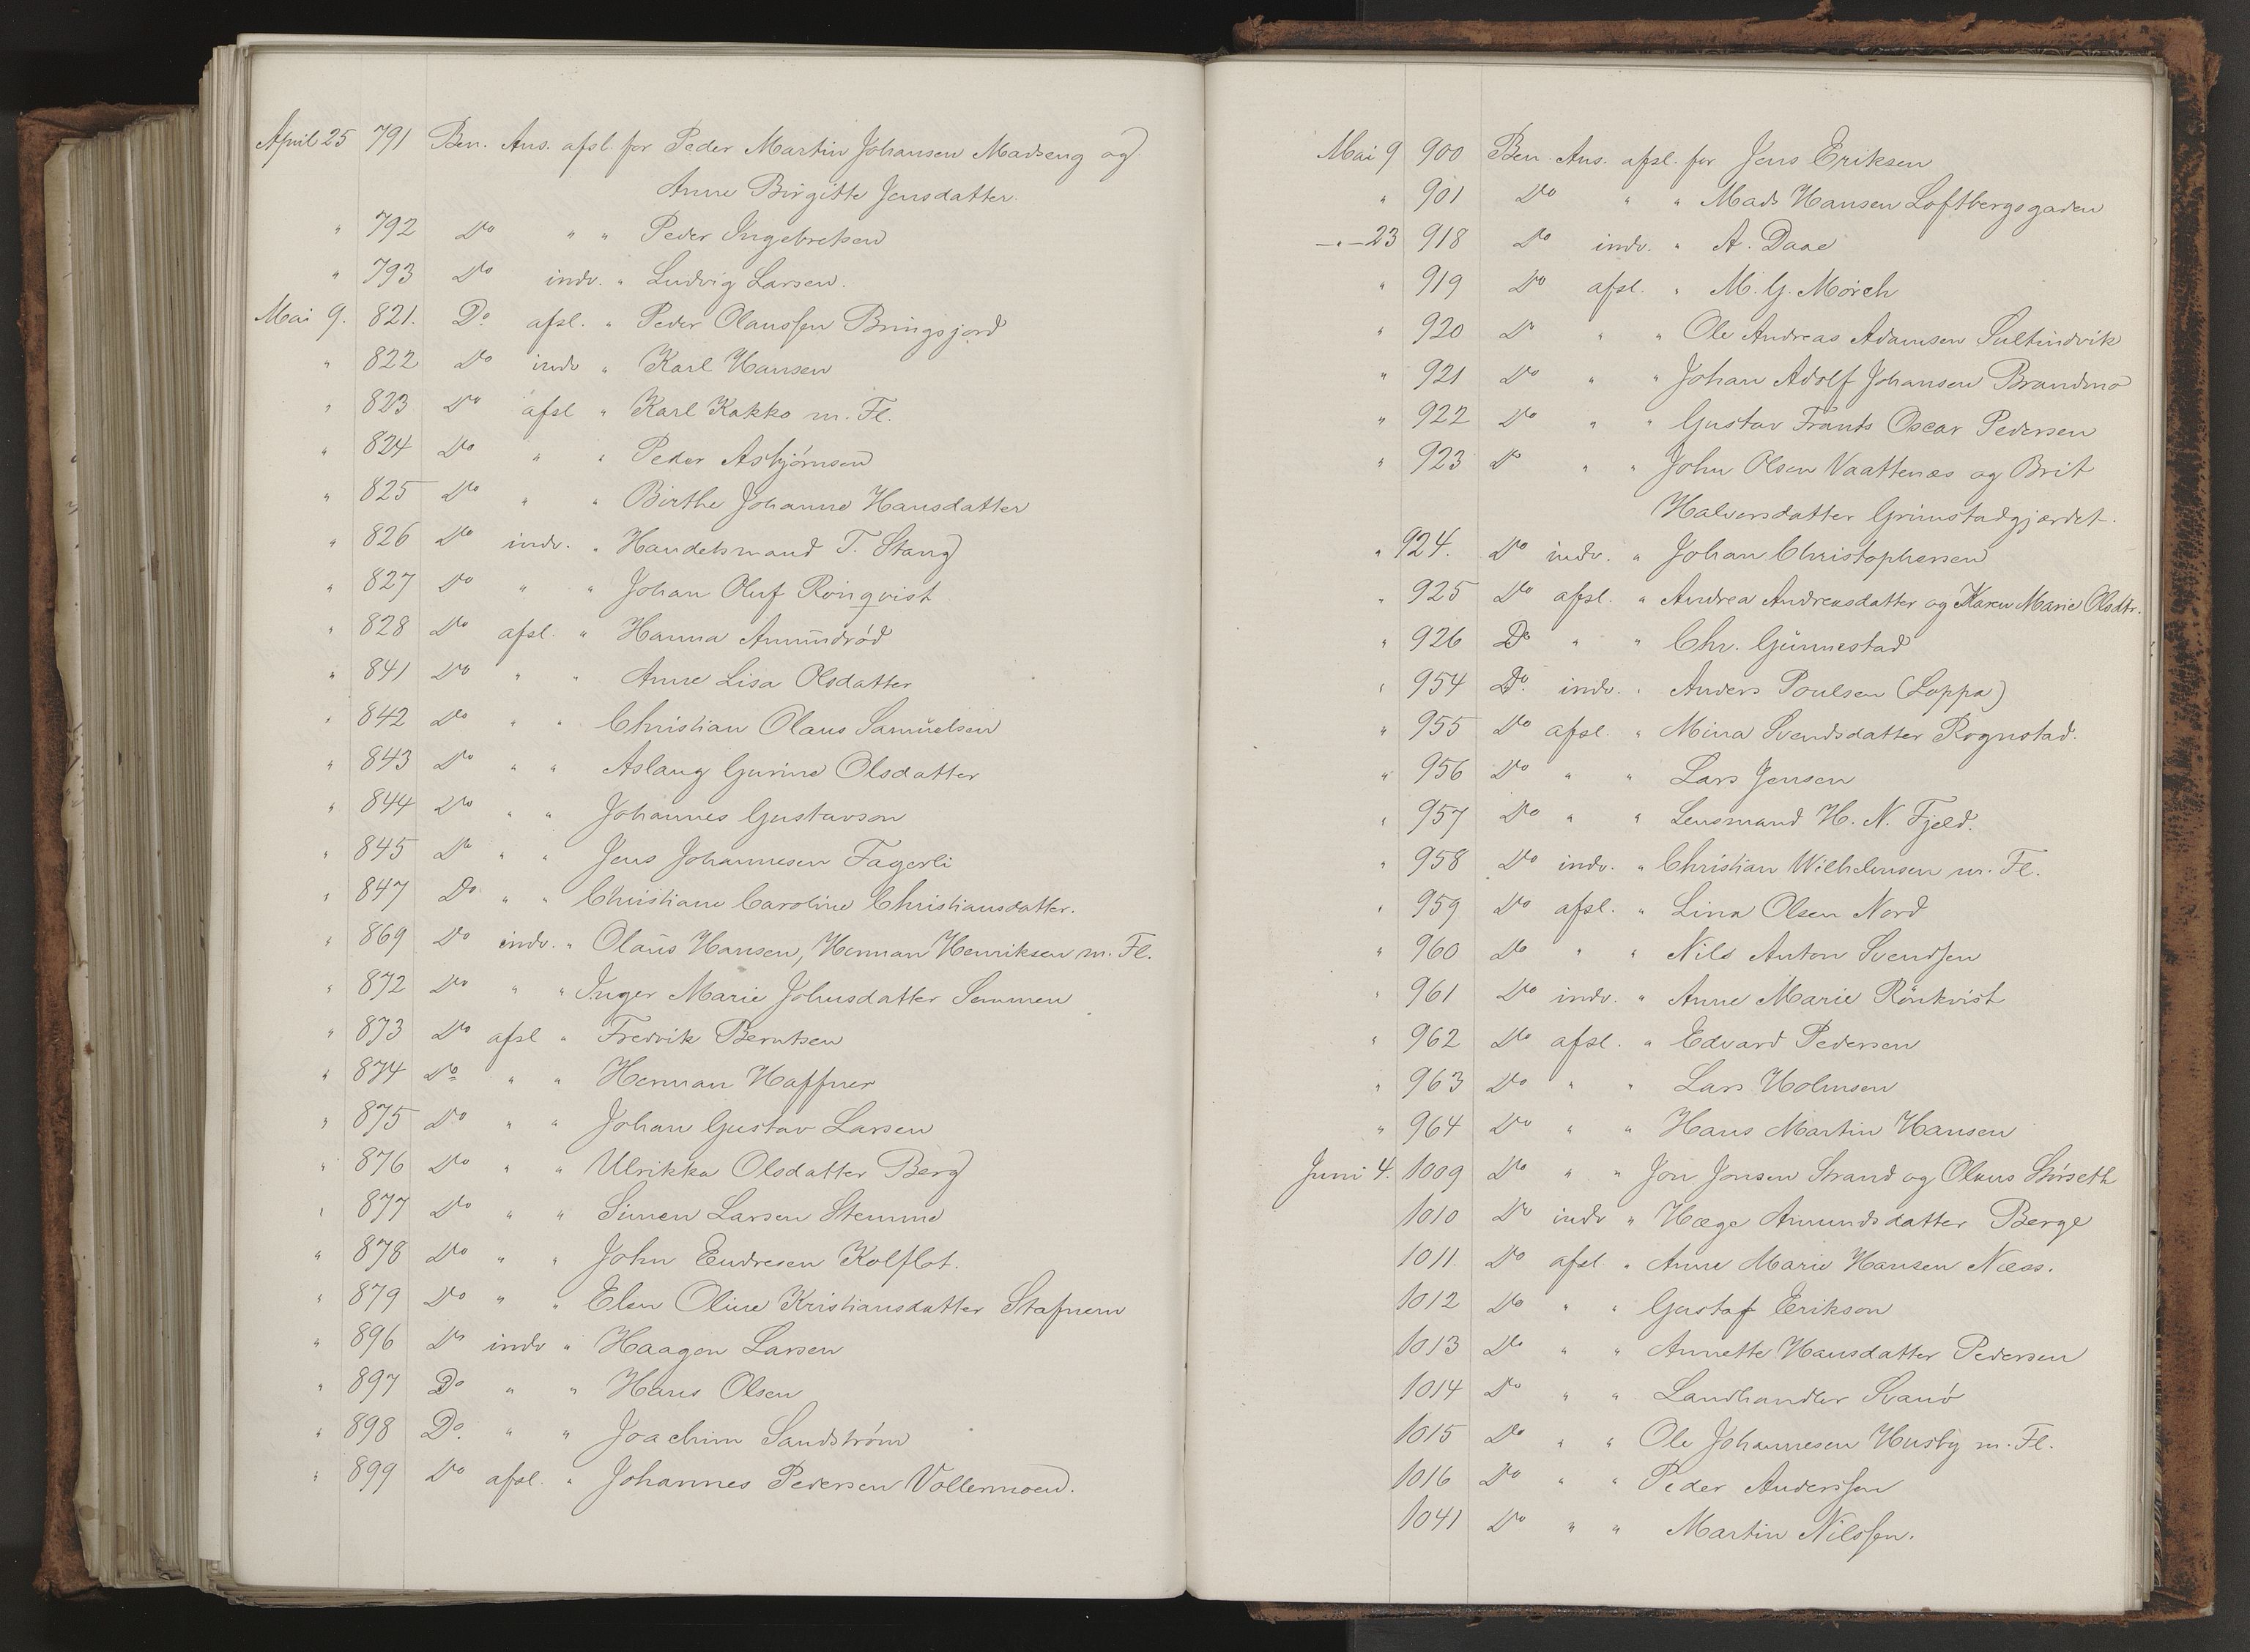 April 25 791 Ben. Ans. afsl. for Peder Martin Johansen Madseng og
Anne Birgitte Jensdatter.
" 792 Do " " Peder Ingebretsen
" 793 Do indv. " Ludvig Larsen.
Mai 9. 821. Do afsl. " Peder Olaussen Bringsjord
" 822 Do indv " Karl Hansen
" 823 Do afsl " Karl Kakko m. Fl.
" 824 Do " " Peder Asbjørnsen
" 825 Do " " Birthe Johanne Hansdatter
" 826 Do indv. " Handelsmand T. Stang
" 827 Do " " Johan Oluf Rönqvist
" 828 Do afsl. " Hanna Amundrød
" 841 Do " " Anne Lisa Olsdatter
" 842 Do " " Christian Olaus Samuelsen
" 843 Do " " Aslaug Gurine Olsdatter
" 844 Do " " Johannes Gustavson
" 845 Do " " Jens Johannesen Fagerli
" 847 Do " " Christiane Caroline Christiansdatter.
" 869 Do indv. " Olaus Hansen, Herman Henriksen m. Fl.
" 872 Do " " Inger Marie Johnsdatter Semmen
" 873 Do afsl " Fredrik Berntsen
" 874 Do " " Herman Haffner
" 875 Do " " Johan Gustav Larsen
" 876 Do " " Ulrikka Olsdatter Berg
" 877 Do " " Simen Larsen Stemme
" 878 Do " " John Endresen Kolflot.
" 879 Do " " Elen Oline Kristiansdatter Stafnem
" 896 Do indv " Haagen Larsen
" 897 Do " " Hans Olsen
" 898 Do. " " Joachim Sandstrøm
" 899 Do afsl. " Johannes Pedersen Vollermoen.
Mai 9 900 Ben. Ans. afsl. for Jens Eriksen
" 901 Do " " Mads Hansen Loftbergsgaden
—"—23 918 Do indv. " A. Daae
" 919 Do afsl. " M. G. Mörch
" 920 Do " " Ole Andreas Adamsen Sultindvik
" 921 Do " " Johan Adolf Johansen Brandmo
" 922 Do " " Gustav Frants Oscar Pedersen
" 923 Do " " John Olsen Vaattenæs og Brit
Halvorsdatter Grimstadgjærdet.
" 924. Do indv. " Johan Christophersen
" 925 Do afsl. " Andrea Andreasdatter og Karen Marie Olsdtr.
" 926 Do " " Chr. Gunnestad
" 954 Do. indv. " Anders Poulsen (Loppa)
" 955 Do afsl. " Mina Svendsdatter Rognstad.
" 956 Do " " Lars Jensen
" 957 Do " " Lensmand H. N. Fjeld.
" 958 Do indv. " Christian Wilhelmsen m. Fl.
" 959 Do afsl. " Lina Olsen Nord
" 960 Do " " Nils Anton Svendsen
" 961 Do indv. " Anne Marie Rönkvist
" 962 Do afsl. " Edvard Pedersen
" 963 Do " " Lars Holmsen
" 964 Do " " Hans Martin Hansen
Juni 4. 1009 Do " " Jon Jonsen Strand og Olaus Störseth
1010 Do indv " Hæge Amundsdatter Berge
1011 Do afsl. " Anne Marie Hansen Næss.
1012 Do " " Gustaf Erikson
1013 Do " " Annette Hansdatter Pedersen
1014 Do " " Landhandler Svanø
1015 Do " " Ole Johannesen Husby m. Fl.
1016 Do " " Peder Anderssen
1041 Do " " Martin Nilssen.